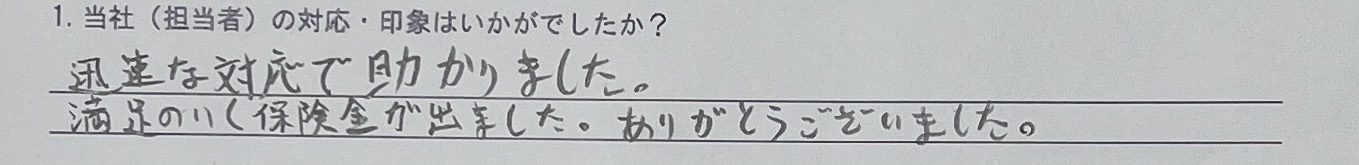 1. 当社（担当者）の対応・印象はいかがでしたか？
迅速な対応で助かりました。
満足のいく保険金が出ました。ありがとうございました。